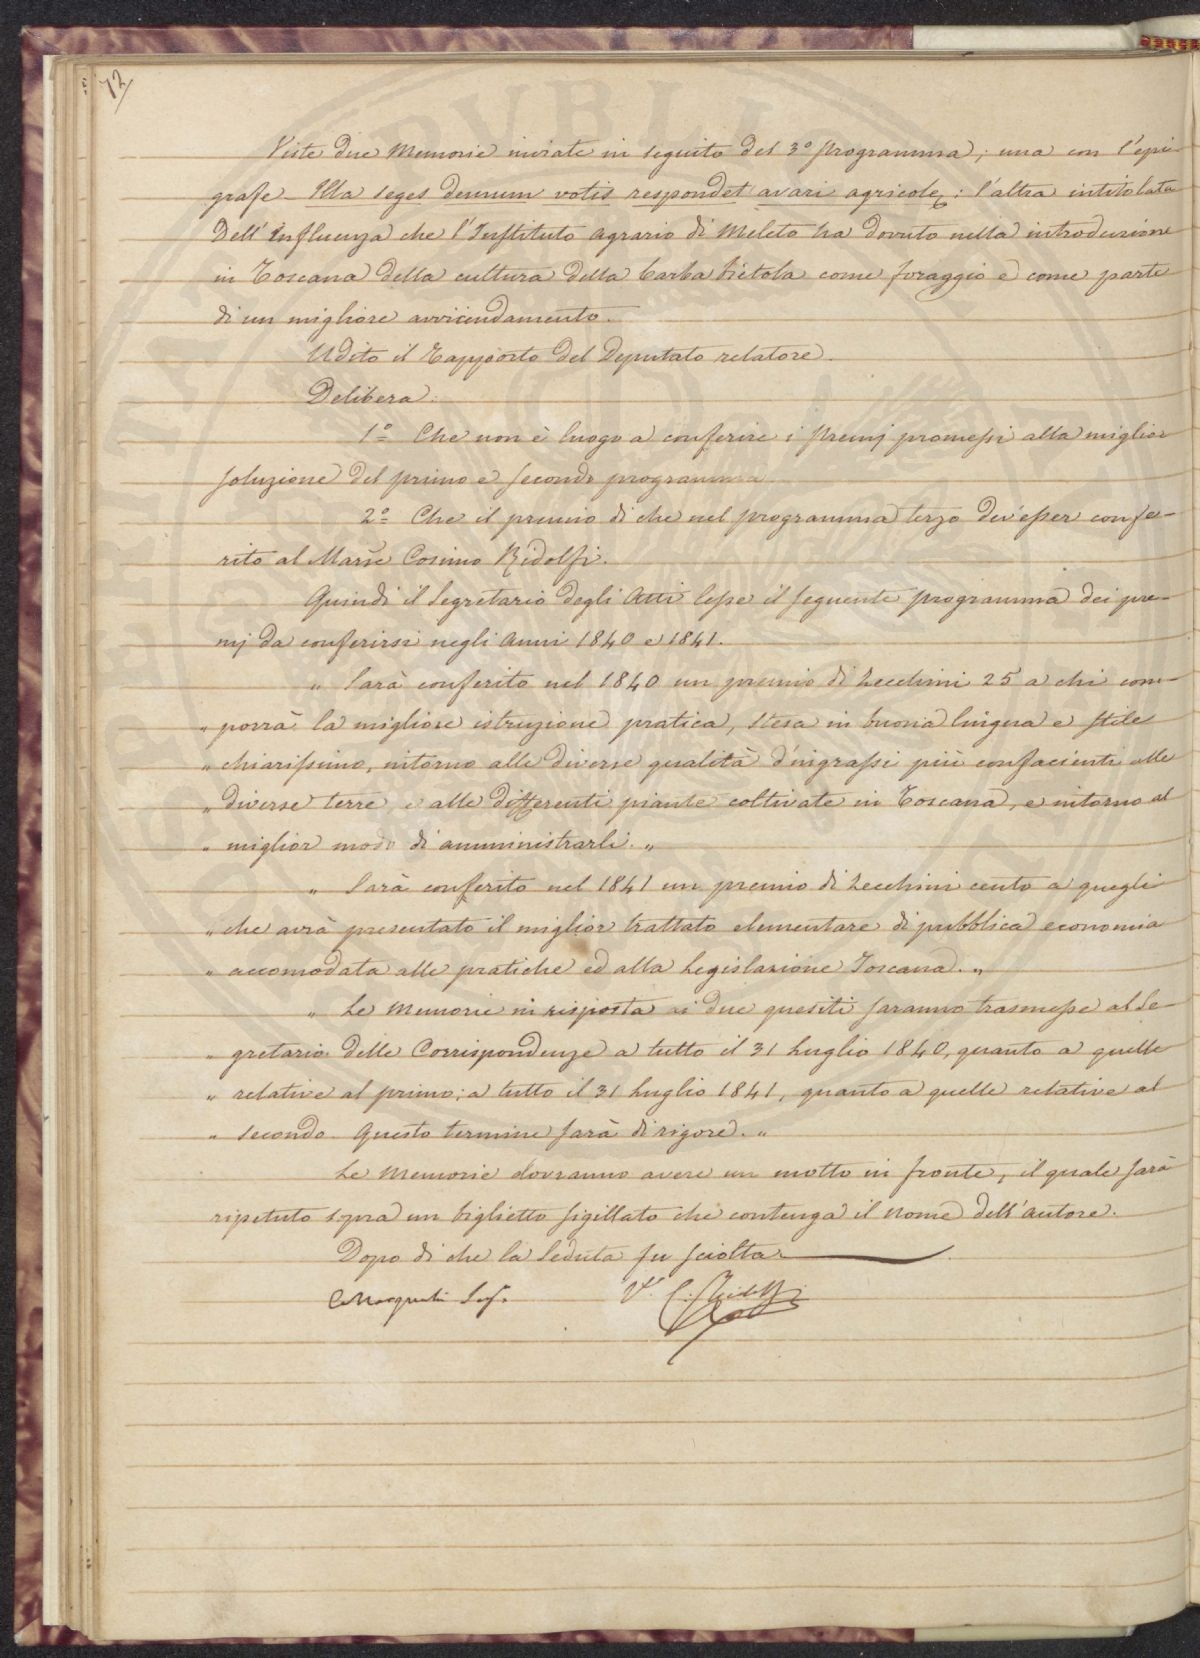 72
Viste due Memorie inviate in seguito del 3º programma; una con l'epi-
grafe - Illa seges demum votis respondet avari agricolę: l'altra intitolata
Dell'Influenza che l'Instituto agrario di Meleto ha dovuto nella introduzione
in Toscana della cultura della barba bietola come foraggio e come parte
di un migliore avvicendamento.
Udito il Rapporto del Deputato relatore.
Delibera:
1º Che non è luogo a conferire i premj promessi alla miglior
soluzione del primo e secondo programma
2º Che il premio di che nel programma terzo dev'esser confe-
rito al Marse Cosimo Ridolfi.
Quindi il Segretario degli Atti lesse il seguente programma dei pre-
mj da conferirsi negli Anni 1840 e 1841.
" Sarà conferito nel 1840 un premio di Zecchini 25 a chi com-
" porrà la migliore istruzione pratica, stesa in buona lingua e stile
" chiarissimo, intorno alle diverse qualità d'ingrassi più confacienti alle
" diverse terre, e alle differenti piante coltivate in Toscana, e intorno al
" miglior modo di amministrarli. "
" Sarà conferito nel 1841 un premio di Zecchini cento a quegli
" che avrà presentato il miglior trattato elementare di pubblica economia
" accomodata alle pratiche ed alla Legislazione Toscana. "
" Le Memorie in risposta ai due quesiti saranno trasmesse al Se-
" gretario delle Corrispondenze a tutto il 31 Luglio 1840, quanto a quelle
" relative al primo; a tutto il 31 Luglio 1841, quanto a quelle relative al
" secondo. Questo termine sarà di rigore. "
Le Memorie dovranno avere un motto in fronte, il quale sarà
ripetuto sopra un biglietto sigillato che contenga il nome dell'autore.
Dopo di che la Seduta fu sciolta
Vto C. Ridolfi